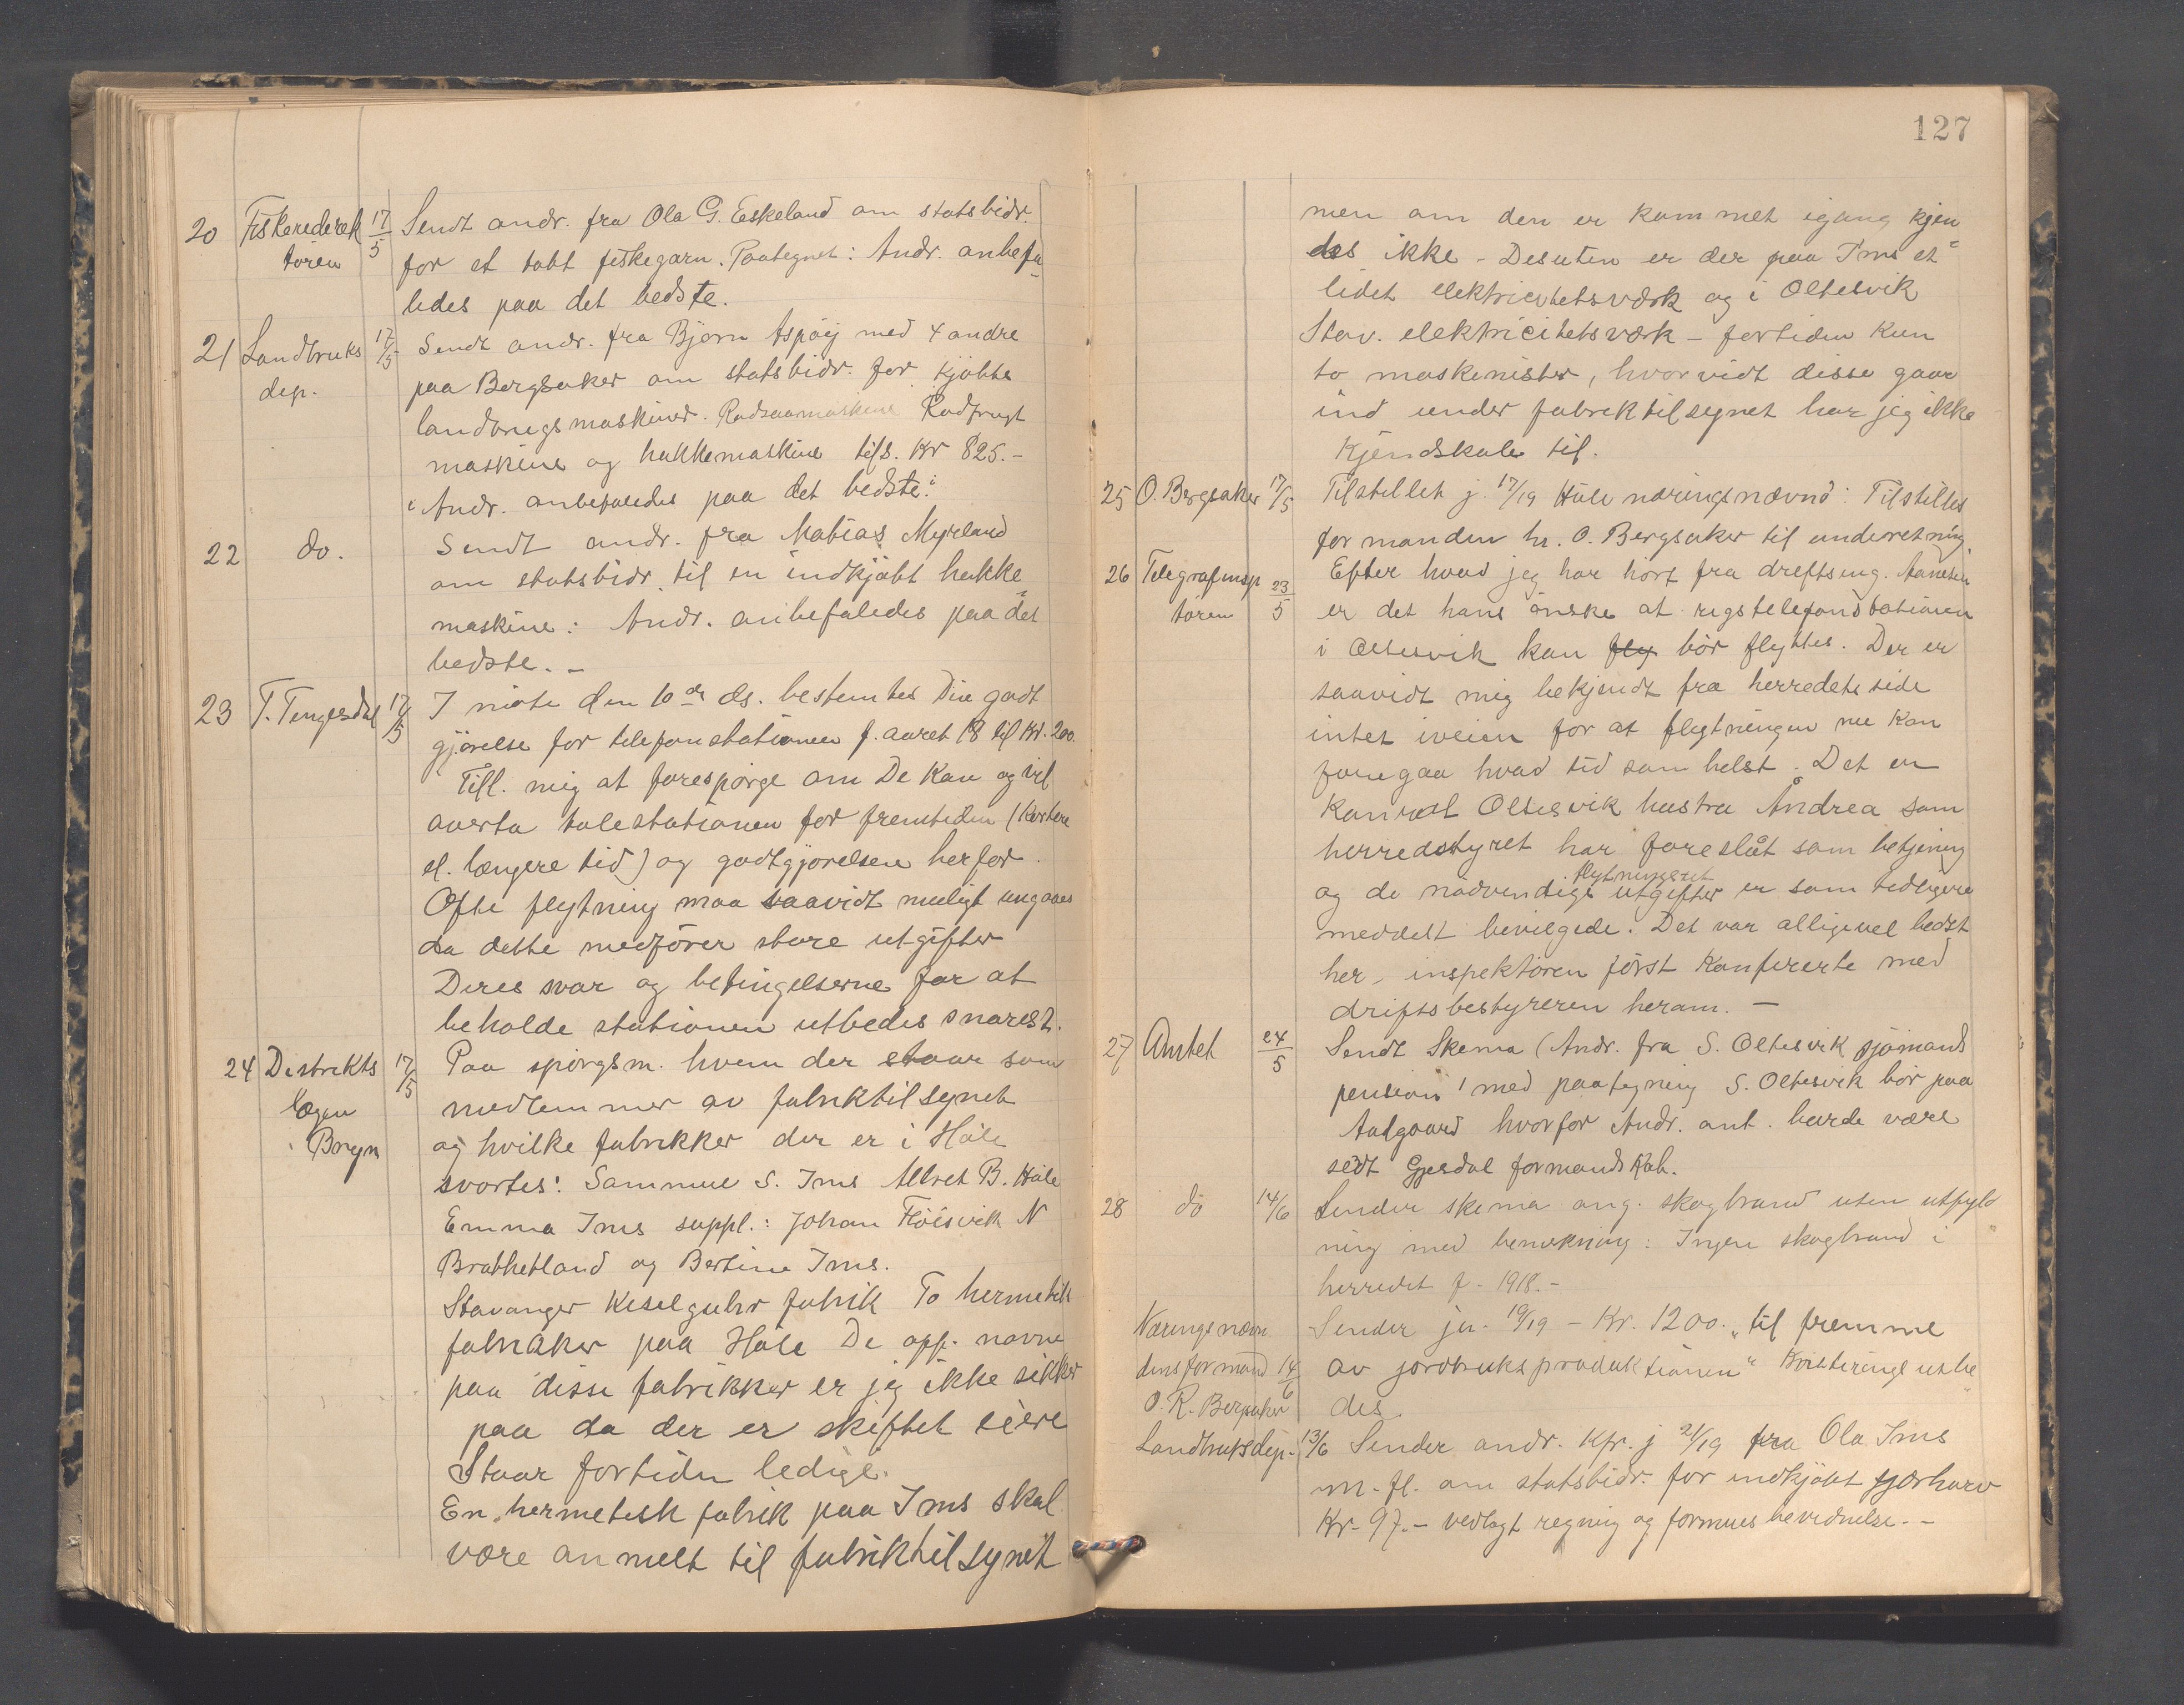 20 Fiskeridirek 17/5 Sendt andr. fra Ola G. Eskeland om statsbidr.
tören for et tabt fiskegarn. Paategnet: Andr. anbefa-
ledes paa det bedste.
21 Landbruks 17/5 Sendt andr. fra Bjørn Aspøy med 4 andre
dep. paa Bergsaker om statsbidr. for kjøbte
landbrugsmaskiner. Radsaamaskine Rodfrugt
maskine og hakkemaskine tils. Kr 825.-
"Andr. anbefaledes paa det bedste."
22 do. Sendt andr. fra Matias Myrland
om statsbidr. til en indkjøbt hakke-
maskine: Andr. anbefaledes paa det
bedste. -
23 T. Tengesdal 17/5 I møte den 10de ds. bestemtes Din godt
gjørelse for telefonstationen f. aaret 18 til Kr. 200.
Till. mig at forespørge om De kan og vil
overta talestationen for fremtiden (kortere
el. længere tid) og godtgjørelsen herfor.
Ofte flytning maa saavidt muligt ungaaes
da dette medfører store utgifter
Deres svar og betingelserne for at
beholde stationen utbedes snarest.
24 Distrikts 17/5 Paa spörgsm. hvem der staar som
lægen medlemmer av fabriktilsynet
Bryn og hvilke fabrikker der er i Høle
svartes: Sammue S. Ims Alfret B. Høle
Emma Ims suppl.: Johan Fløisvik N
Brattetland og Bertine Ims.
Stavanger Keselguhr fabrik To hermetik
fabrikker paa Høle De opp. navne
paa disse fabrikker er jeg ikke sikker
paa da der er skiftet eiere
Staar fortiden ledige.
En hermetisk fabrik paa Ims skal
være anmelt til fabriktilsynet
127
men om den er kommet igang kjen-
des ikke - Desuten er der paa Ims et
lidet elektricitetsværk og i Oltesvik
Stav. elektricitetsværk - fortiden kun
to maskinister, hvorvidt disse gaar
ind under fabriktilsynet har jeg ikke
kjendskab til.
25 O. Bergsaker 17/5 Tilstillet j. 17/19 Høle næringsnævnd: Tilstilles
formanden hr. O. Bergsaker til underretning.
26 Telegrafinsp 23/5 Efter hvad jeg har hört fra driftsing. Aanesen
tören er det hans ønske at rigstelefonstationen
i Oltesvik kan fly bör flyttes. Der er
saavidt mig bekjendt fra herredets side
intet iveien for at flytningen nu kan
foregaa hvad tid som helst. Det er
Konrad Oltesvik hustru Andrea som
herredstyret har foreslåt som betjening
flytnings
og de nødvendige utgifter er som tidligere
meddelt bevilgede. Det var alligevel bedst
hr. inspektören först konfererte med
driftsbestyreren herom. -
27 Amtet 24/5 Sendt Skema (Andr. fra S. Oltesvik sjømands
pension) med paategning S. Oltesvik bör paa
Aalgaard hvorfor Andr. ant. burde være
sedt Gjesdal formandskab.
28 do 14/6 Sender skema ang. skogbrand uten utfyld
ning med bemerkning: Ingen skogbrand i
herredet f. 1918. -
Næringsnævn Sender jn. 19/19 - Kr. 1200. "til fremme
dens formand 14/6 av jordbruksproduktionen" Kvittering utbe-
O. R. Bergsaker des.
Landbruksdep. 13/6 Sender andr. kfr. j 21/19 fra Ola Ims
m. fl. om statsbidr. for indkjøbt fjærharv
Kr. 97.- vedlagt regning og formuesbevidnelse. -